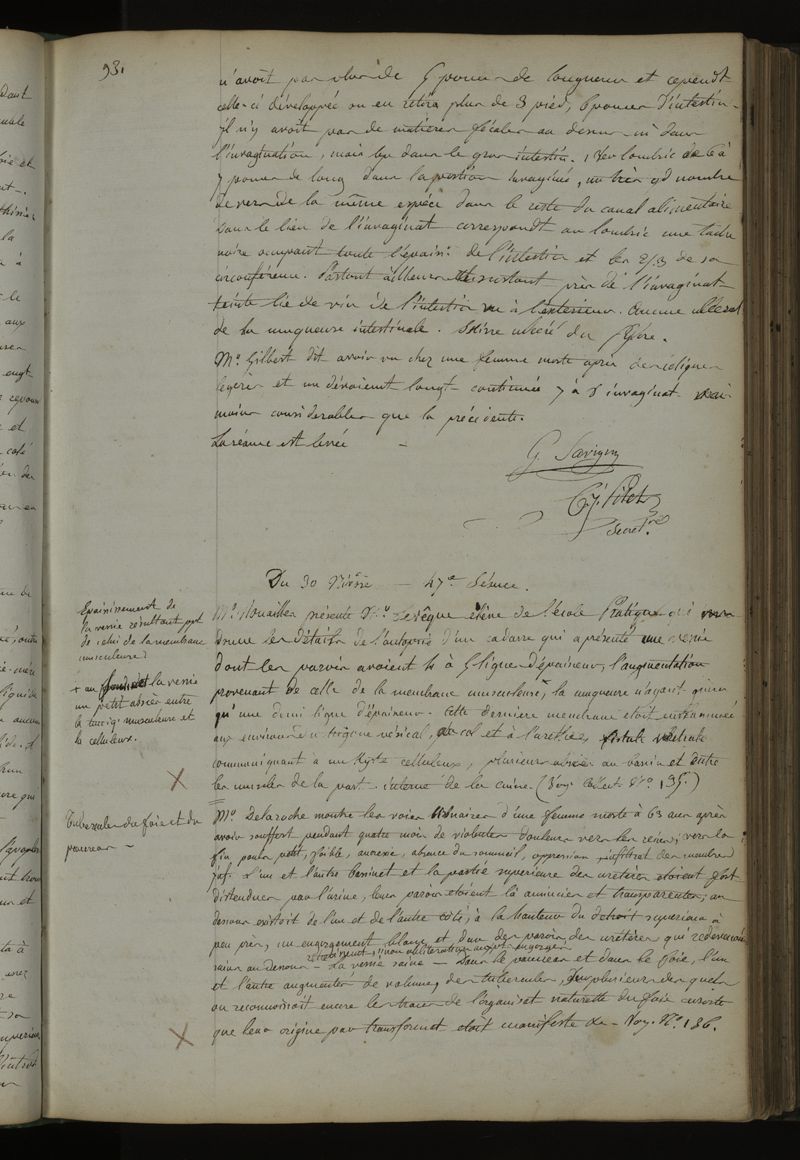 93.
n'avoit pas plus de 5 pouces de longueur et cependt
celle-ci développée on en retira plus de 3 pieds, 6 pouces d'intestin.
il n'y avoit pas de matières fécales au dessus ni dans
l'invagination, mais bien dans le gros intestin. 1 ver lombric de 6 à
7 pouces de long dans la portion invaginée, un très gd nombre
de vers de la même espèce dans le reste du canal alimentaire
dans le lieu de l'invaginat. correspondt au lombric une tache
noire occupant toute l'épaiss. de l'intestin et les 2/3 de sa
circonférence. Partout ailleurs et surtout près de l'invaginat.
teinte lie de vin de l'intestin vu à l'extérieur. Aucune ulcérat.
de la muqueuse intestinale.
Mr. Gilbert dit avoir vu chez une femme morte après des coliques
légères et un dévoiement longt. continué 7 à 8 invaginat.
moins considérables que la précédente.
La séance est levée
G. Savigny
Secret.re
Du 30 — 47e Séance.
Epaississement de
la vessie résultant ppt
de celui de la membrane
musculeuse.
+ au la vessie
un petit abcès entre
la tuniq. musculeuse et
la celluleux.
Mr. présente Mr. Levêque élève de l'école Pratique qui
donne les détails de l'autopsie d'un cadavre qui a présenté une vessie
dont les parois avoient 4 à 5 lignes d'épaisseur, l'augmentation
provenant de celle de la membrane musculeuse, la muqueuse n'ayant guères
qu'une demi ligne d'épaisseur. Cette dernière membrane etoit enflammée
aux environs du trigone vésical, au col et à l'urethre,
communiquant a un Kyste celluleux, plusieurs abcès au bassin et entre
les muscles de la part. interne de la cuisse. (Voy. No. 135.)
Tubercules du foie et du
pancreas -
Mr. Delaroche montre les voies urinaires d'une femme morte à 63 ans après
avoir souffert pendant quatre mois de violentes douleurs vers les reins; vers la
fin pouls petit, faible, anorexie, absence du sommeil, oppression infiltrat. des membres
inf. L'un et l'autre bassinet et la partie superieure des uretères etoient fort
distendues par l'urine, leurs parois etoient là amincies et transparentes, au
dessous existoit de l'un et de l'autre coté, à la hauteur du detroit superieur à
peu près, un engorgement blanc et dur des parois des uretères qui redevenoient
retrécissement, non oblitération au pt. engorgé
sains au dessous - La vessie saine — Dans le pancreas et dans le foie, l'un
et l'autre augmentés de volume, des tubercules, dans plusieurs des quels
on reconnoissoit encore les traces de l'organisat. naturelle du foie
que leur origine par transformat. etoit manifeste - Voy. No. 136.